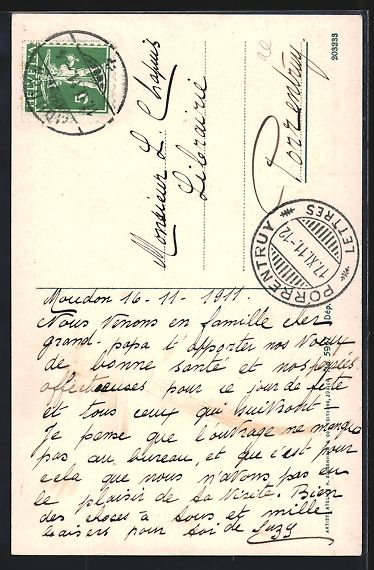 HELVETIA
5
Monsieur L. Chapuis
Librairie
Porrentruy
203233
PORRENTRUY
17.XI.11.-12
LETTRES
Moudon 16-11-1911.
Nous venons en famille cher
grand-papa t'apporter nos voeux
de bonne santé et nos pensées
affectueuses pour ce jour de fête
et tous ceux qui suivront
Je pense que l'ouvrage ne manque
pas au bureau, et que c'est pour
cela que nous n'avons pas eu
le plaisir de ta visite. Bien
des choses à tous et mille
baisers pour toi de Suzy